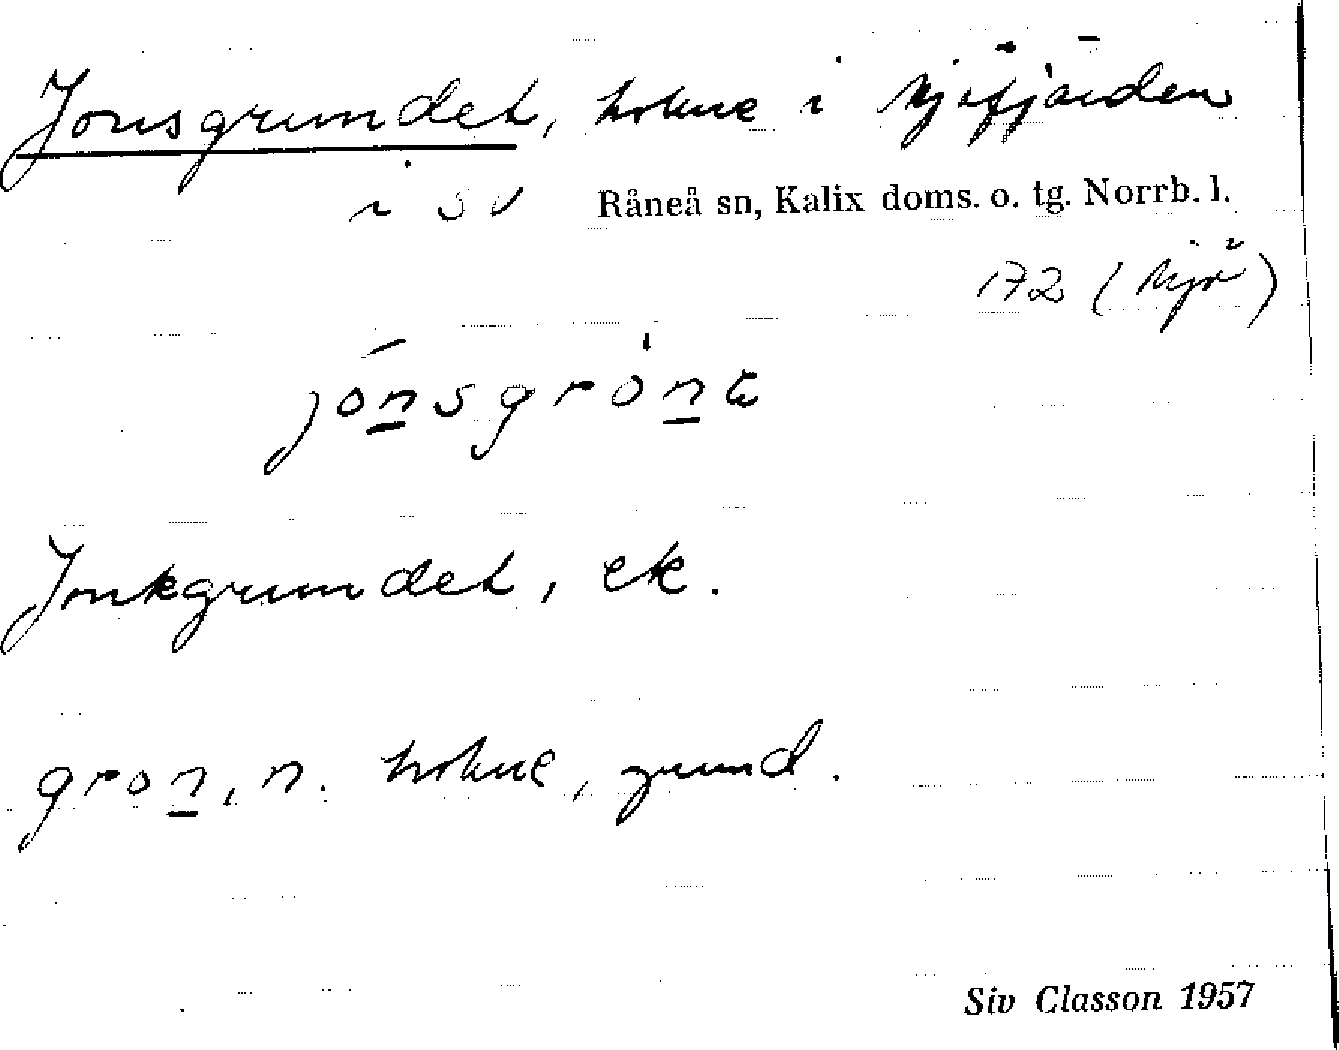 Jonsgrundet, holme i Hjöfjärden
i sv Råneå sn, Kalix doms. o. tg. Norrb. l.
172 (Hjö)
jo̱nsgrón̲t
Jonkgrundet, ek.
gron̲, n. holme, grund.
Siv Classon 1957